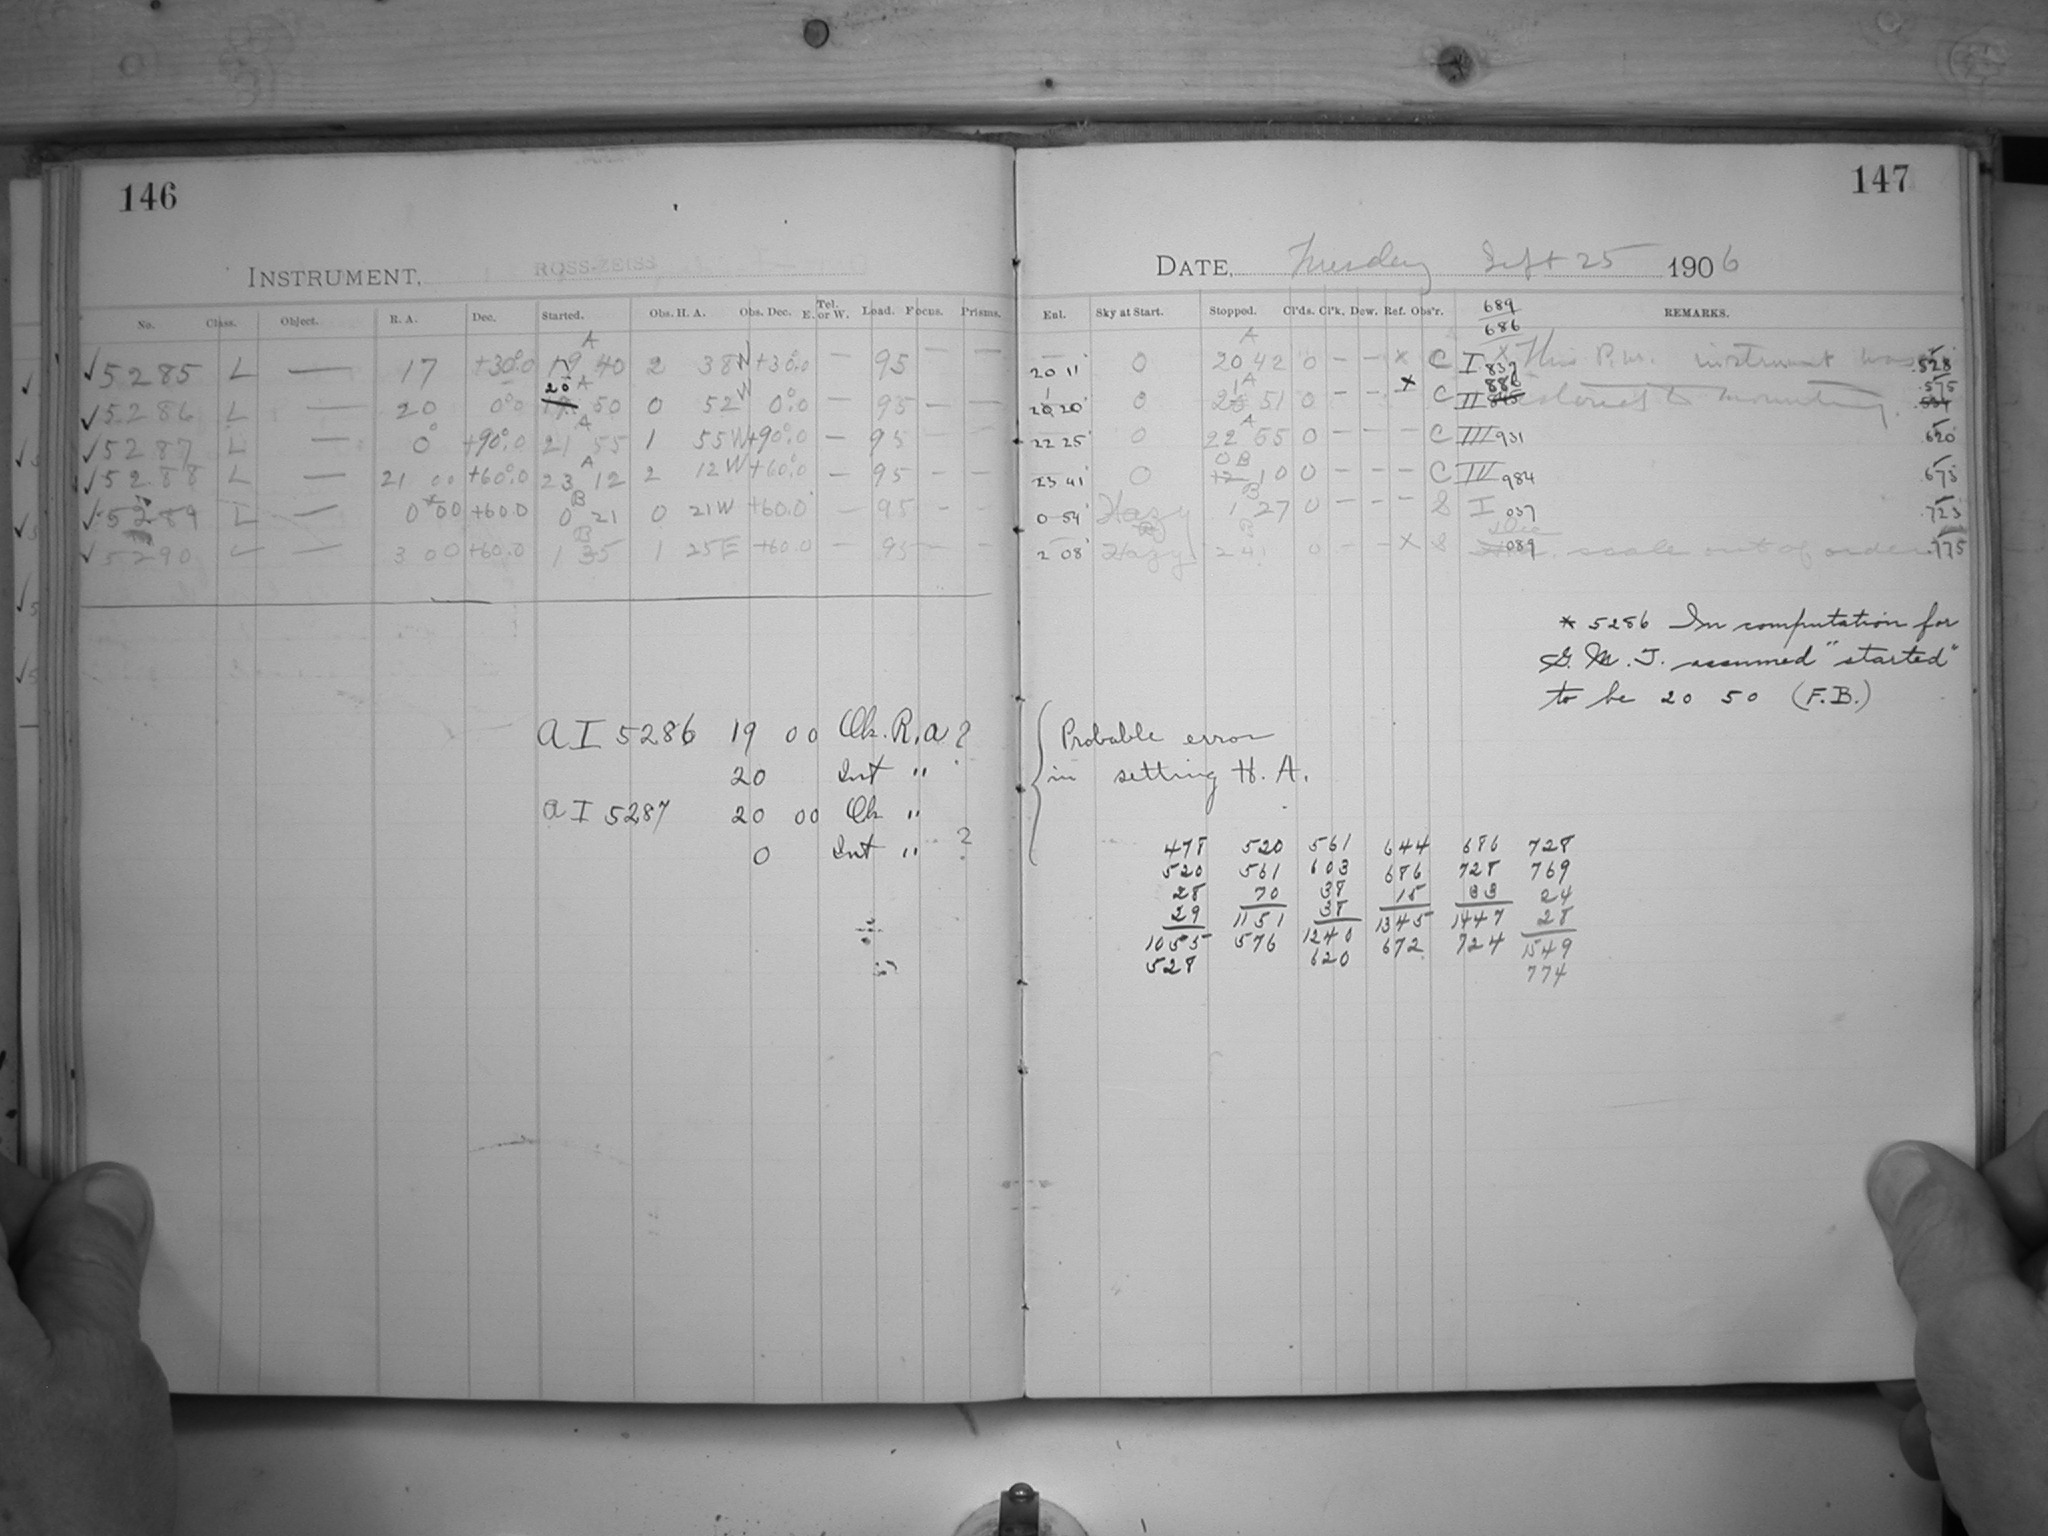 146
INSTRUMENT, ROSS-ZEISS
No. Class. Object. R. A. Dec. Started. Obs. H. A. Obs. Dec. Tel. E. or W. Load. Focus. Prisms.
✓5285 L — 17 +30°.0 19 A 40 2 38W +30°.0 — 95 — —
✓5286 L — 20 0°.0 20 A 50 0 52W 0°.0 — 95 — —
✓5287 L — 0° +90°.0 21 A 55 1 55W +90°.0 — 95
✓5288 L — 21 00 +60°.0 23 A 12 2 12W +60°.0 — 95 —
✓5289 L — 0 00 +60.0 0 B 21 0 21W +60.0 — 95 — —
✓5290 L — 3 00 +60.0 1 B 35 1 25E +60.0 — 95 — —
A I 5286 19 00 Ch. R. A ?
20 Int "
A I 5287 20 00 Ch "
0 Int " ?
147
DATE, Tuesday Sept 25 1906
Enl. Sky at Start. Stopped. Cl'ds. Cl'k. Dew. Ref. Obs'r. 689 686 REMARKS.
20 11 0 20 A 42 0 — — x C I 839 x This P.M. instrument was .528
0 51 0 — — * C II 886 to mounting. .575
22 25 0 22 A 55 0 — — — C III 931 .620
23 41 0 0 B 10 0 — — — C III 984 .673
0 54 Hazy 1 B 27 0 — — — S I 037 .723
2 08 Hazy 2 B 41 0 — — x S 089 scale out of order .775
* 5286 In computation for
G. M. T. assumed "started"
to be 20 50 (F.B.)
Probable error
in setting H. A.
478 520 561 644 686 728
520 561 603 686 728 769
28 70 38 15 33 24
29 1151 38 1345 1447 28
1055 576 1240 672 724 1549
528 620 774